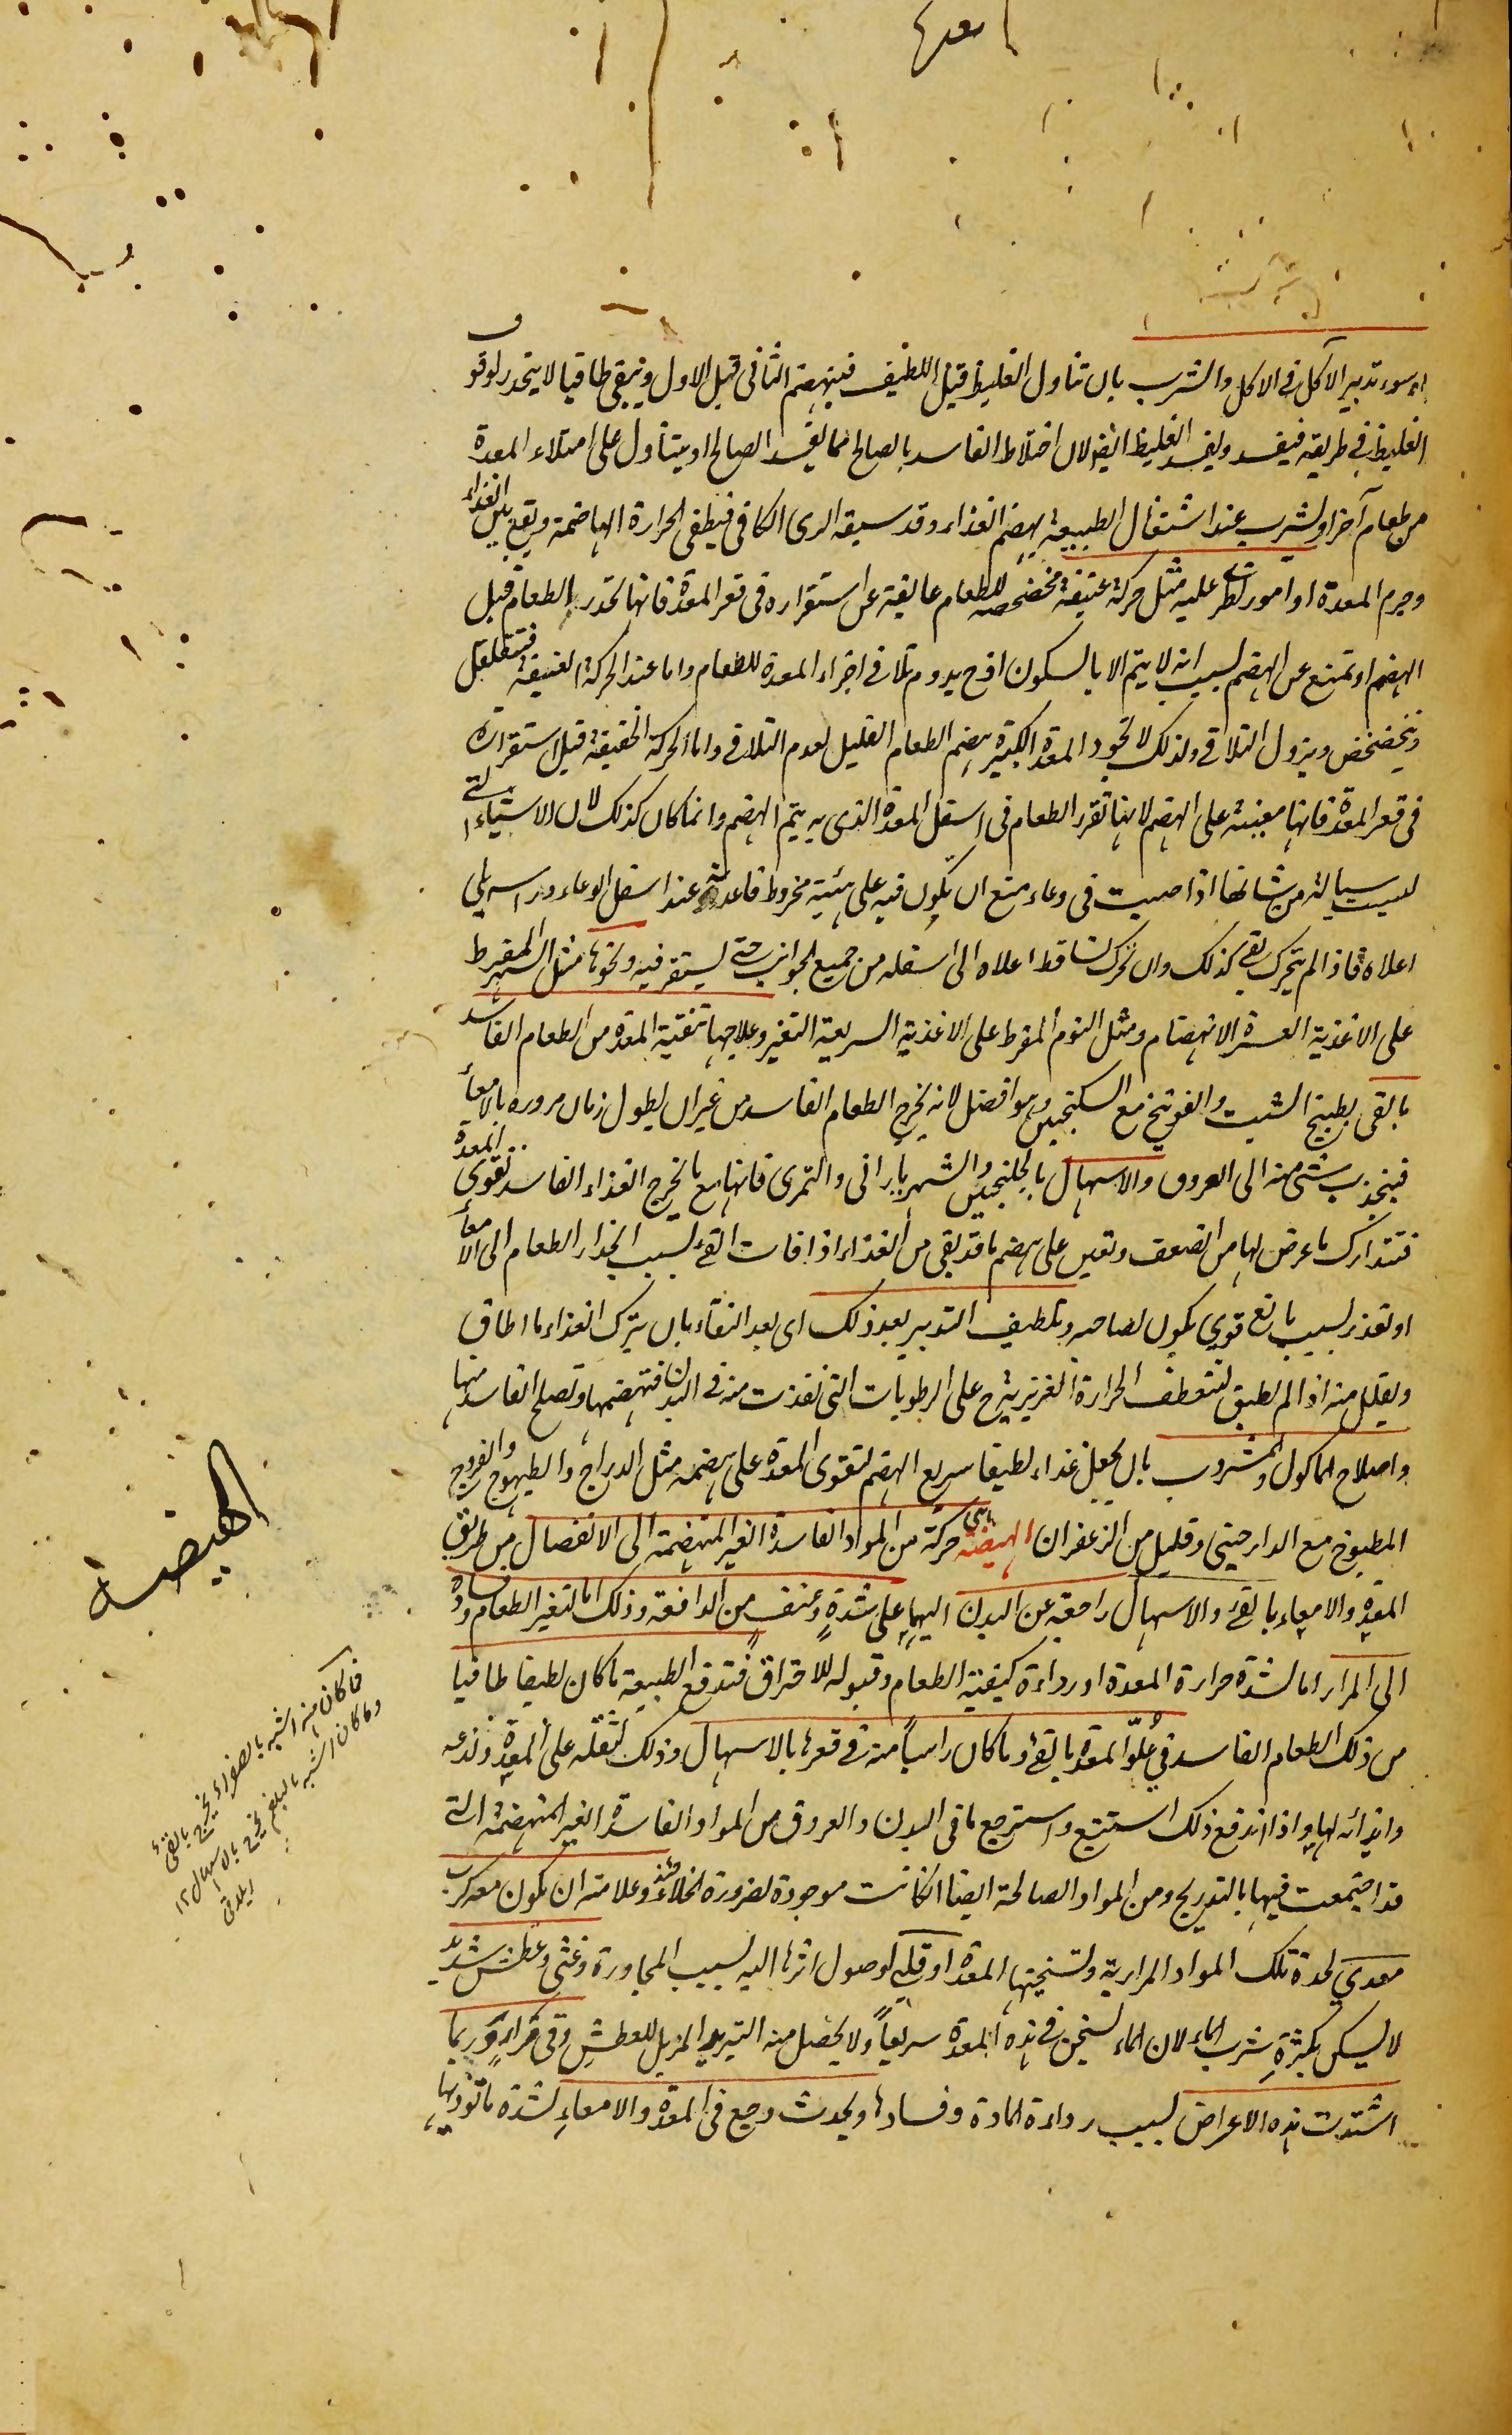 او سوء تدبير الآكل فى الاكل والشرب بان تناول الغليظ قبل اللطيف فينهضم الثانى قبل الاول ويبقى طافيا لا ينحدر لوقوف
الغليظ فى طريقه فيفسد ويفسد الغليظ ايضا لان اختلاط الفاسد بالصالح مما يفسد الصالح او يتناول على امتلاء المعدة
من طعام آخر او يشرب عند اشتغال الطبيعة بهضم الغذاء وقد سبقه الرى الكافى فيطفى الحرارة الهاضمة ويقع بين الغذاء
وجرم المعدة او امور تطرء عليه مثل حركة عنيفة مخضخضة للطعام عايقة عن استقراره فى قعر المعدة فانها تحدر الطعام قبل
الهضم او تمنع عن الهضم بسبب انه لا يتم الا بالسكون اذ ح يدوم تلاقى اجزاء المعدة للطعام واما عند الحركة العنيفة فيتقلقل
ويتخضخض ويزول التلاقى ولذلك لا تجود المعدة الكبيرة بهضم الطعام القليل لعدم التلاقى واما الحركة الخفيفة قبل استقراره
فى قعر المعدة فانها معينة على الهضم لانها تقرر الطعام فى اسفل المعدة الذى به يتم الهضم وانما كان كذلك لان الاشياء التى
ليست سيالة من شانها اذا صبت فى وعاء متسع ان يكون فيه على هيئة مخروط قاعدته عند اسفل الوعاء وراسه يلى
اعلاه فاذا لم يتحرك بقى كذلك وان تحرك تساقط اعلاه الى اسفله من جميع الجوانب حتى يستقر فيه ونحوها مثل السهر المفرط
على الاغذية العسرة الانهضام ومثل النوم المفرط على الاغذية السريعة التغير وعلاجها تنقية المعدة من الطعام الفاسد
بالقى بطبيخ الشبت والفوتنج مع السكنجبين وهو افضل لانه يخرج الطعام الفاسد من غير ان يطول زمان مروره بالامعاء
فينجذب شئ منه الى العروق والاسهال بالجلنجبين والشهرياران والتمرى فانها مع ما يخرج الغذاء الفاسد تقوى المعدة
فتتدارك ما عرض لها من الضعف وتعين على هضم ما قد بقى من الغذاء اذا فات القئ بسبب انحدار الطعام الى الامعاء
او تعذر بسبب مانع قوى يكون لصاحبه وتلطيف التدبير بعد ذلك اى بعد النقاء بان يترك الغذاء ما اطاق
ويقلل منه اذا لم يطق لتنعطف الحرارة الغريزية ح على الرطوبات التى نفذت منه فى البدن فتهضمها وتصلح الفاسد منها
واصلاح الماكول والمشروب بان يجعل غذاء لطيفا سريع الهضم لتقوى المعدة على هضمه مثل الدراج والطيهوج والفروج
المطبوخ مع الدارچينى وقليل من الزعفران الهيضة هى حركة من المواد الفاسدة الغير المنهضمة الى الانفصال من طريق
المعدة والامعاء بالقئ والاسهال راجعة عن البدن اليها على شدة وعنف من الدافعة وذلك اما لتغير الطعام وفساده
الى المرار اما لشدة حرارة المعدة او رداءة كيفية الطعام وقبوله للاحتراق فتدفع الطبيعة ما كان لطيفا طافيا
من ذلك الطعام الفاسد فى علو المعدة بالقئ وما كان راسبا منه فى قعرها بالاسهال وذلك لثقله على المعدة ولذعه
وايذائه لها واذا اندفع ذلك استتبع واسترجع ما فى البدن والعروق من المواد الفاسدة الغير المنهضمة التى
قد اجتمعت فيها بالتدريج ومن المواد الصالحة ايضا ان كانت موجودة لضرورة الخلاء وعلامته ان يكون معه كرب
معدى لحدة تلك المواد المرارية وتسخينها المعدة او قلبى لوصول اثرها اليه بسبب المجاورة وغثى وعطش شديد
لا يسكن بكثرة شرب الماء لان الماء يسخن فى هذه المعدة سريعا ولا يحصل منه التبريد المزيل للعطش وقى مرار وربما
اشتدت هذه الاعراض بسبب رداءة المادة وفسادها ويحدث وجع فى المعدة والامعاء لشدة ما تؤذيها
الهيضة
فما كان منه اشبه بالصفراء يخرج بالقئ
وما كان اشبه بالبلغم يخرج بالاسهال ١٢
ايلاقى